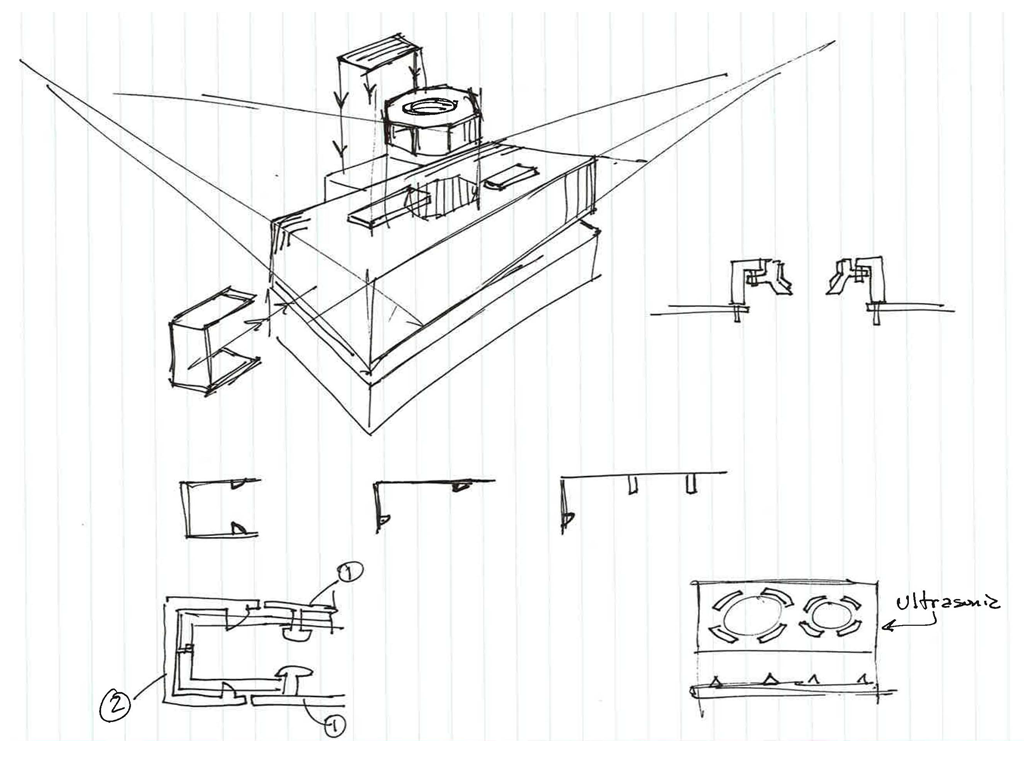 1
2
1
ultrasonic